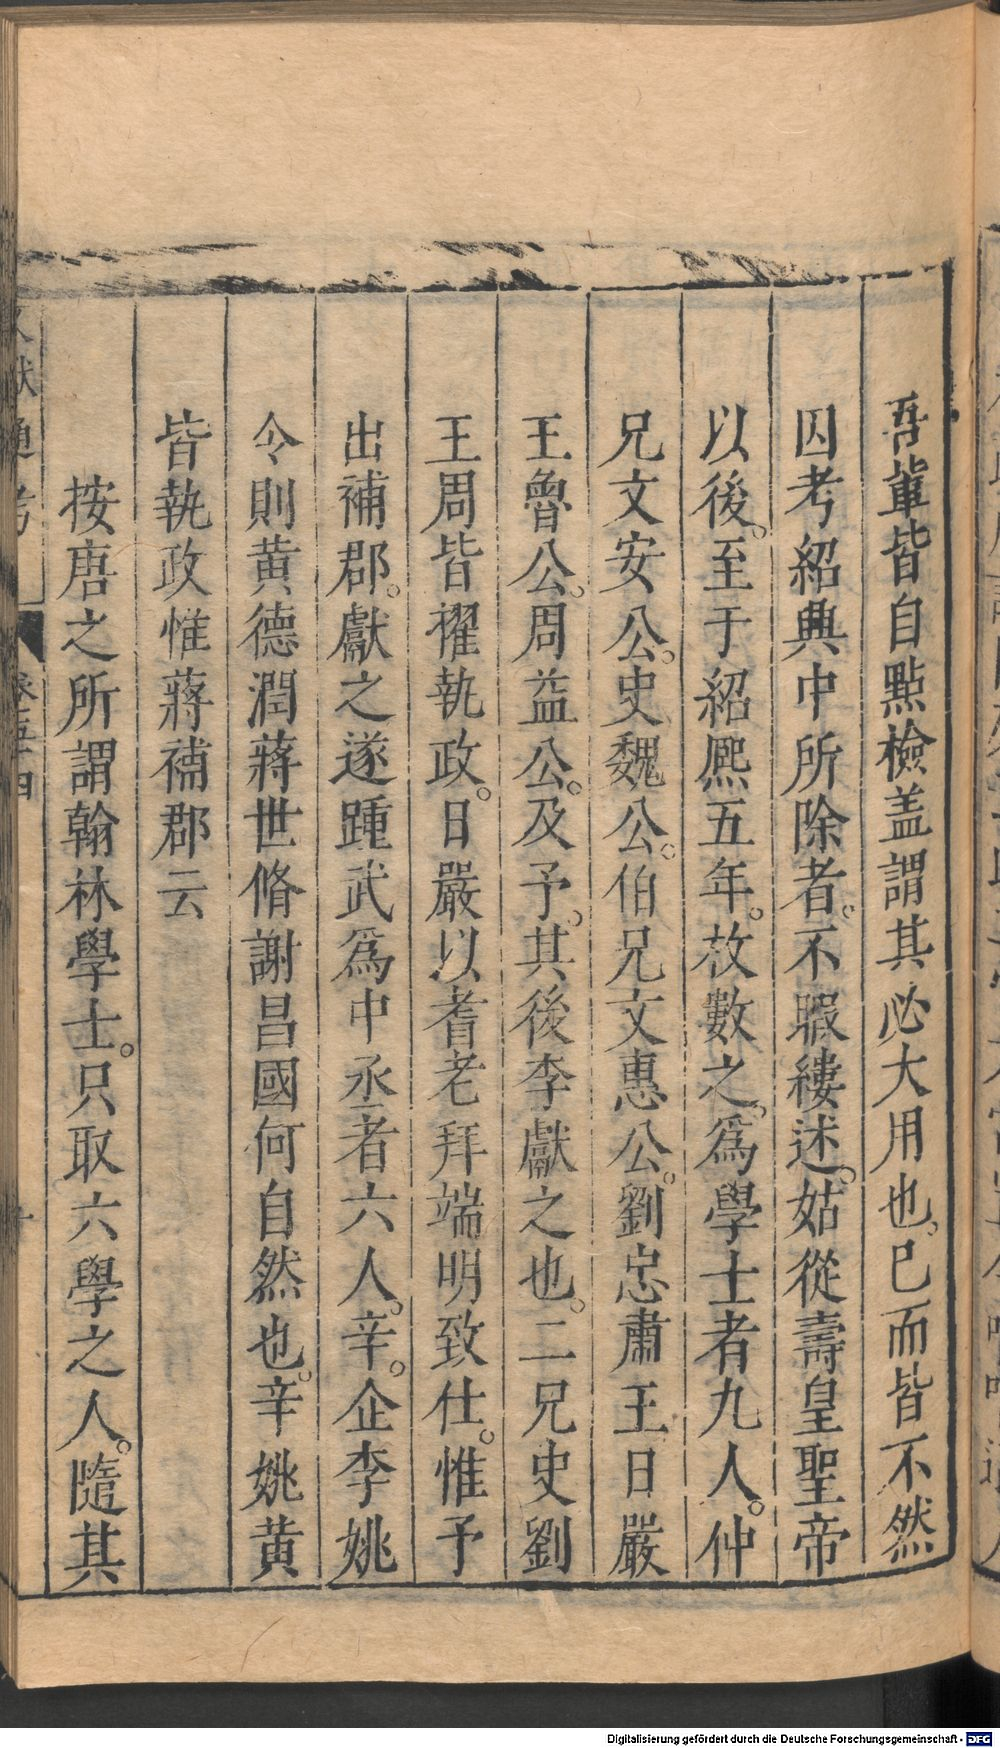 吾軰皆自點檢盖謂其必大用也。已而皆不然
因考紹興中所除者。不暇縷述。姑從壽皇聖帝
以後。至于紹熈五年。故數之。爲學士者九人。仲
兄文安公。史魏公。伯兄文惠公。劉忠肅王日嚴
王魯公。周益公。及予。其後李獻之也。二兄史劉
王周皆擢執政。日嚴以耆老拜端明致仕。惟予
出補郡。獻之遂踵武爲中丞者六人。辛。企李姚
令則黄德潤蔣世脩謝昌國何自然也。辛姚黄
皆執政惟蔣補郡云
按唐之所謂翰林學士。只取六學之人。隨其
文獻通考
卷五十四
Digitalisierung gefördert durch die Deutsche Forschungsgemeinschaft - DFG